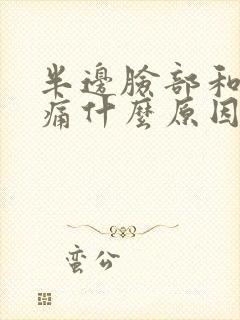 半邊臉部和
痛什麼原因
蛮公